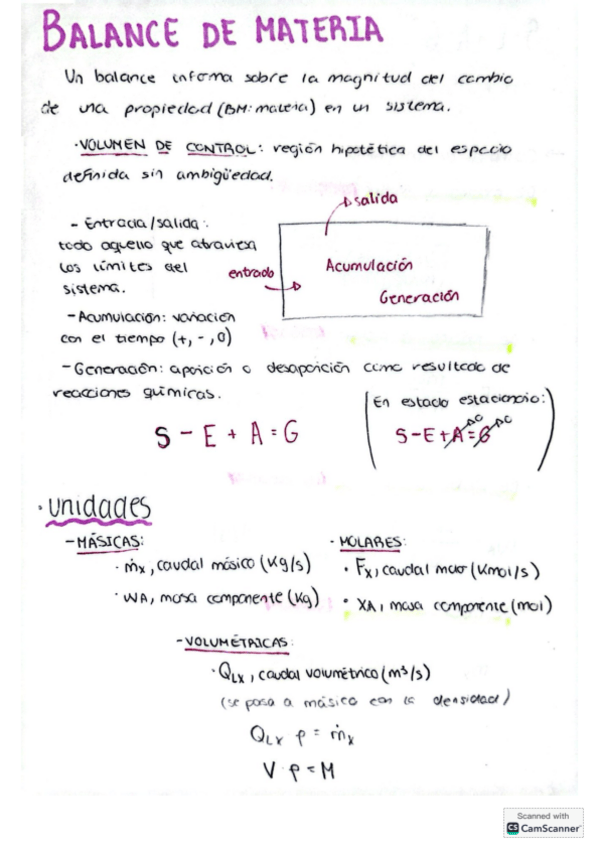 BALANCE DE MATERIA
Un balance informa sobre la magnitud del cambio
de una propiedad (BM: materia) en un sistema.
·VOLUMEN DE CONTROL: región hipotética del espacio
definida sin ambigüedad.
salida
- Entrada/salida:
todo aquello que atraviesa
los límites del
sistema.
entrada
Acumulación
Generación
- Acumulación: variación
con el tiempo (+, -, 0)
- Generación: aparición o desaparición como resultado de
reacciones químicas.
(En estado estacionario:)
S - E + A = G
S - E + A = G
·unidades
- MÁSICAS:
· ṁx, caudal másico (Kg/s)
· WA, masa componente (Kg)
· MOLARES:
· Fx, caudal molar (Kmol/s)
· XA, masa componente (mol)
- VOLUMÉTRICAS:
· QLx, caudal volumétrico (m³/s)
(se pasa a másico con la densidad)
QLx ρ = ṁx
V · ρ = M
Scanned with
CS CamScanner